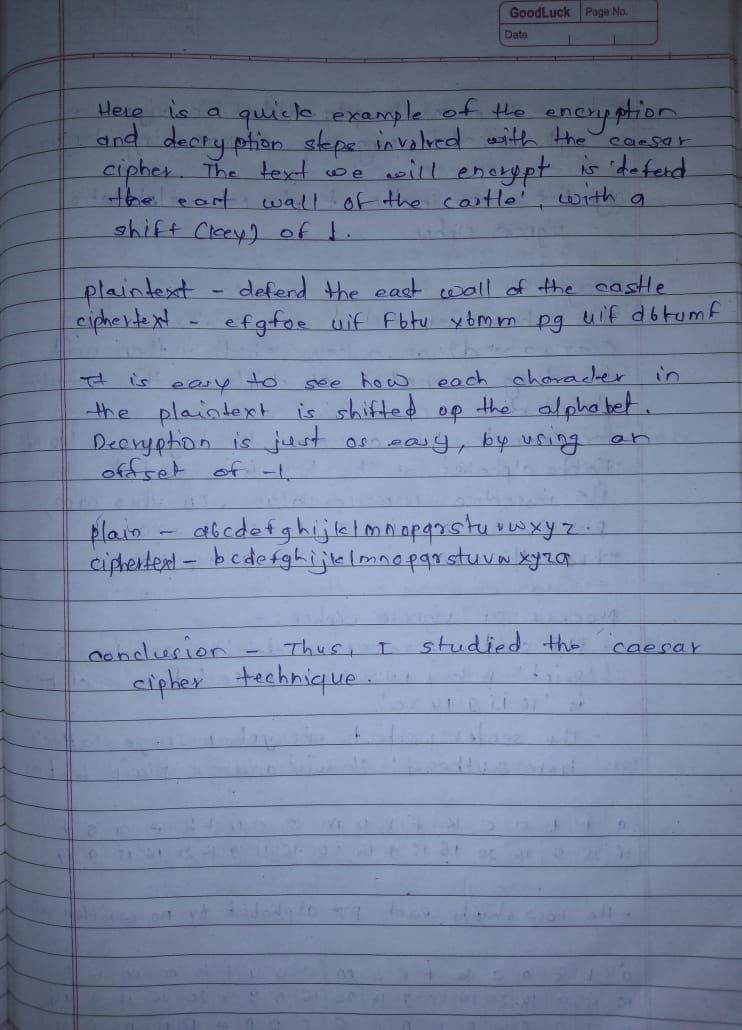 GoodLuck Page No.
Date
Here is a quick example of the encryption
and decryption steps involved with the caesar
cipher. The text we will encrypt is 'defend
the east wall of the castle', with a
shift (key) of 1.
plaintext - defend the east wall of the castle
ciphertext - efgfoe uif fbtu xbmm pg uif dbtumf
It is easy to see how each character in
the plaintext is shifted up the alphabet.
Decryption is just as easy, by using an
offset of -1.
plain - abcdefghijklmnopqrstuvwxyz.
ciphertext - bcdefghijklmnopqrstuvwxyza
conclusion - Thus, I studied the caesar
cipher technique.